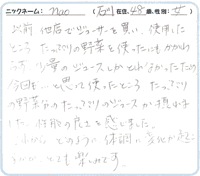 ニックネーム: nao (石川 在住, 48歳, 性別: 女)
以前 他店でジューサーを買い、使用した
ところ たっぷりの野菜を使ったにもかかわ
らず、少量のジュースしかとれなかったため
今回も…と思って使ったところ たっぷり
の野菜分のたっぷりのジュースが採れま
した。性能の良さを感じました。
これから どのように体調に変化が起こ
るのか とても楽しみです。